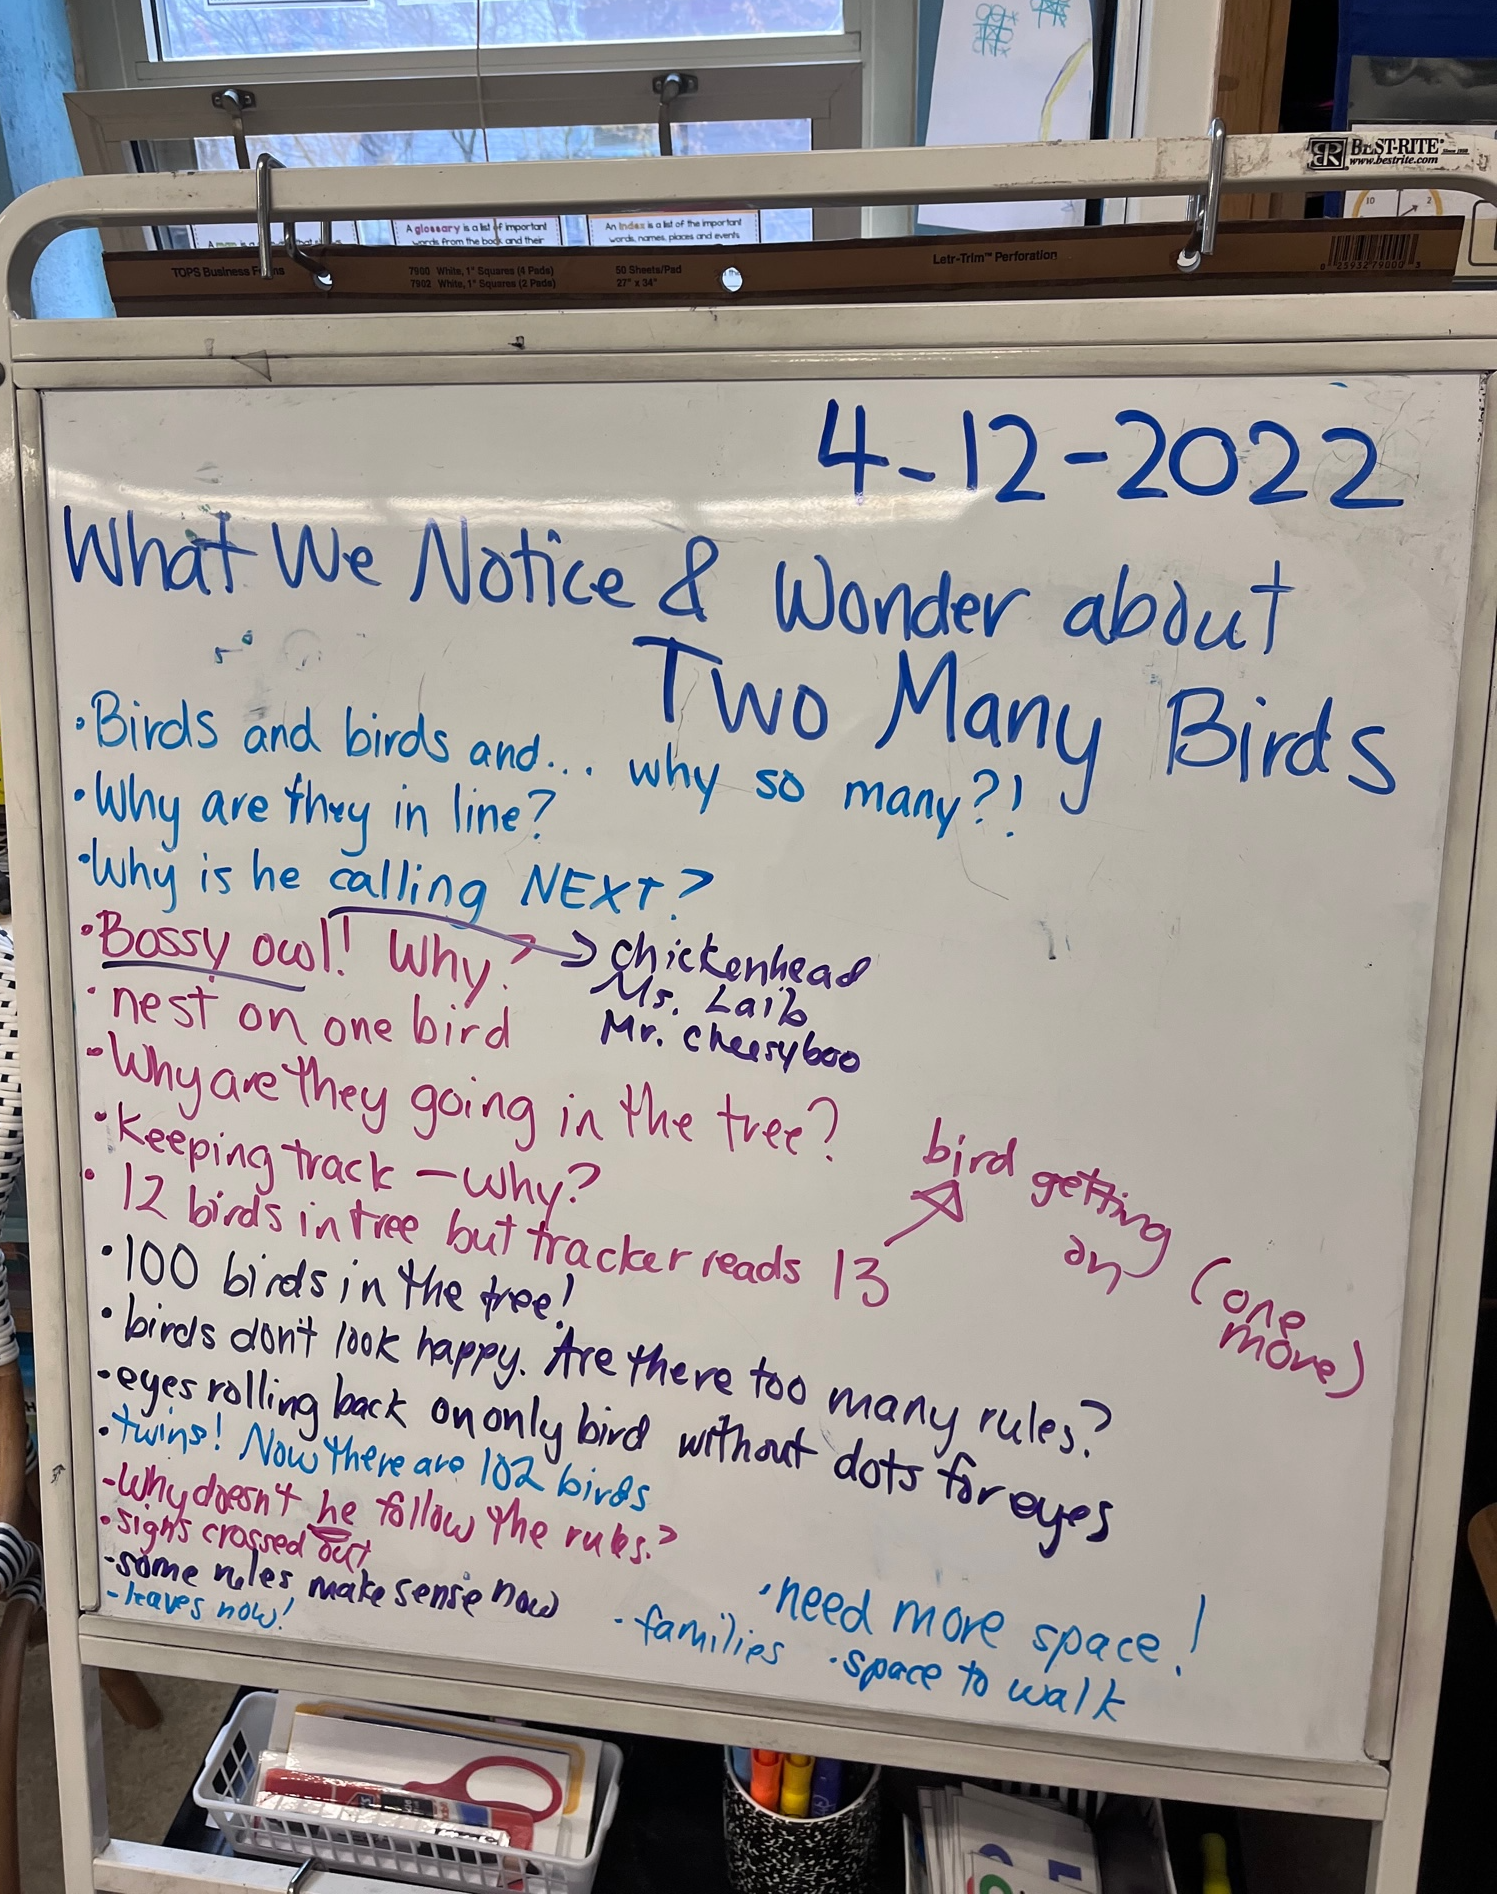 BEST-RITE
www.bestrite.com
A glossary is a list of important
words from the book and their
An Index is a list of the important
words, names, places and events
10 2
TOPS Business Forms
7900 White, 1" Squares (4 Pads)
7902 White, 1" Squares (2 Pads)
50 Sheets/Pad
27" x 34"
Letr-Trim™ Perforation
4-12-2022
What We Notice & Wonder about
Two Many Birds
•Birds and birds and... why so many?!
•Why are they in line?
•Why is he calling NEXT?
•Bossy owl! Why?
chickenhead
Ms. Laib
Mr. cheesyboo
•nest on one bird
•Why are they going in the tree?
•keeping track - why?
•12 birds in tree but tracker reads 13
bird getting
on (one
more)
•100 birds in the tree!
•birds don't look happy. Are there too many rules?
•eyes rolling back on only bird without dots for eyes
•twins! Now there are 102 birds
-Why doesn't he follow the rules?
•signs crossed out
-some rules make sense now
-leaves now!
•need more space!
-families •space to walk